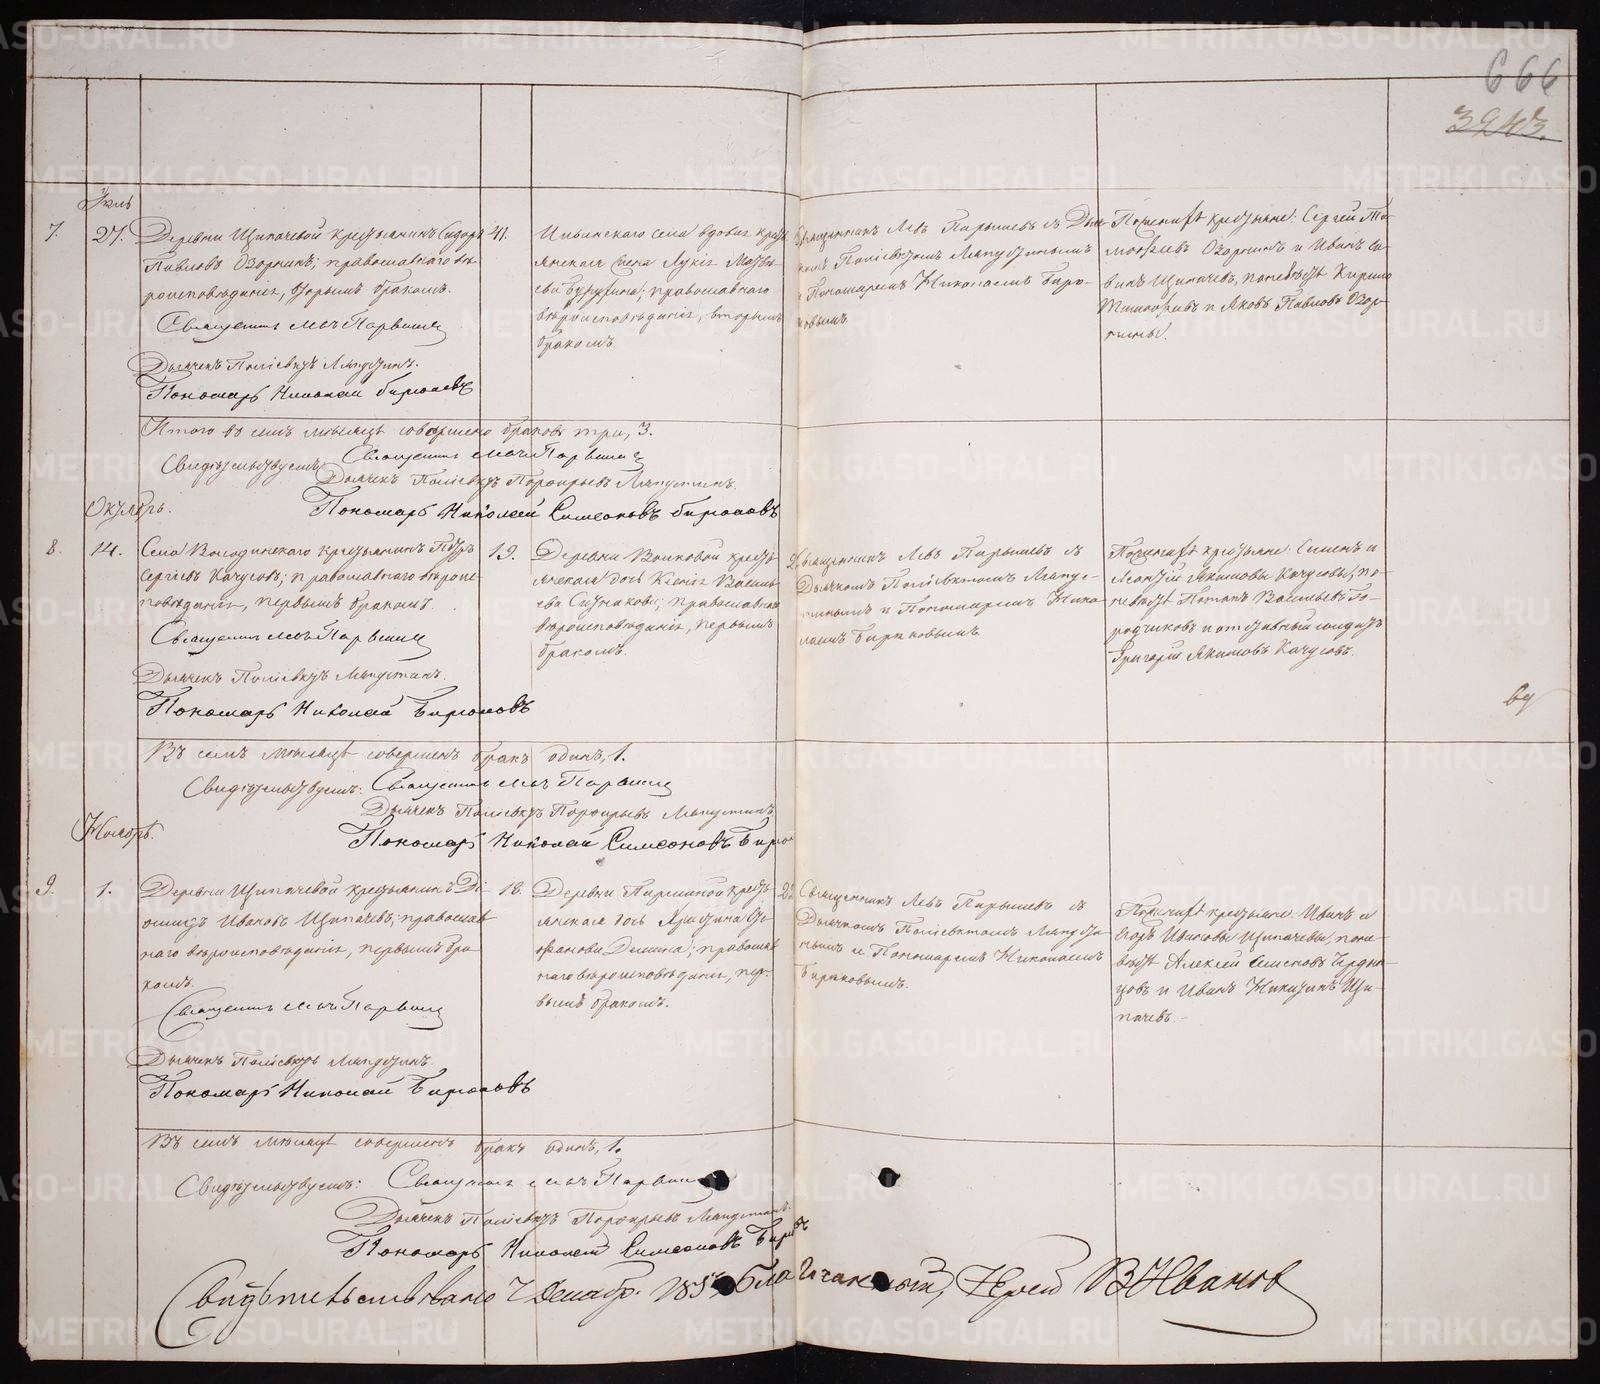 666
3243.
Июль
7.
27.
Деревни Щипачевой крестьянинъ Сидоръ
Павловъ Озорнинъ; православнаго вѣ-
роисповѣданія, вторымъ бракомъ.
Священникъ Левъ Парышевъ
Дьячекъ Поліевктъ Ляпустинъ.
Пономарь Николай Бирюковъ
41.
Ильинскаго села вдовая кресть-
янская жена Лукія
православнаго
вѣроисповѣданія, вторымъ
бракомъ.
Священникъ Левъ Парышевъ съ Дья-
комъ Поліевктомъ Ляпустинымъ
и Пономаремъ Николаемъ Бирю-
ковымъ.
По женихѣ крестьяне: Сергей Ти-
мофѣевъ Озорнинъ и Иванъ Са-
винъ Щипачевъ, по невѣстѣ Кирило
Тимофѣевъ и Яковъ Павловъ Озор-
нины.
Итого въ семъ мѣсяцѣ совершено браковъ три, 3.
Свидѣтельствуемъ: Священникъ Левъ Парышевъ
Дьячекъ Поліевктъ Порфирьевъ Ляпустинъ.
Пономарь Николай Симеоновъ Бирюковъ
Октябрь.
8.
14.
Села Володинскаго крестьянинъ Петръ
Сергѣевъ Качусовъ; православнаго вѣроис-
повѣданія, первымъ бракомъ.
Священникъ Левъ Парышевъ
Дьячекъ Поліевктъ Ляпустинъ.
Пономарь Николай Бирюковъ
19.
Деревни Волковой кресть-
янская дочь Ксенія Василь-
ева православнаго
вѣроисповѣданія, первымъ
бракомъ.
Священникъ Левъ Парышевъ съ
Дьячкомъ Поліевктомъ Ляпус-
тинымъ и Пономаремъ Нико-
лаемъ Бирюковымъ.
По женихѣ крестьяне: Симонъ и
Леонтій Якимовы Качусовы, по
невѣстѣ Потапъ Васильевъ Го-
родчиковъ и отставный солдатъ
Григорій Якимовъ Качусовъ.
Въ семъ мѣсяцѣ совершенъ бракъ одинъ, 1.
Свидѣтельствуемъ: Священникъ Левъ Парышевъ
Дьячекъ Поліевктъ Порфирьевъ Ляпустинъ
Пономарь Николай Симеоновъ Бирю
Ноябрь.
9.
1.
Деревни Щипачевой крестьянинъ Ді-
омидъ Ивановъ Щипачевъ; православ-
наго вѣроисповѣданія, первымъ бра-
комъ.
Священникъ Левъ Парышевъ
Дьячекъ Поліевктъ Ляпустинъ.
Пономарь Николай Бирюковъ
18.
Деревни Паршиной кресть-
янская дочь Христина Сте-
фанова Демина; православ-
наго вѣроисповѣданія, пер-
вымъ бракомъ.
22
Священникъ Левъ Парышевъ съ
Дьячкомъ Поліевктомъ Ляпусти-
нымъ и Пономаремъ Николаемъ
Бирюковымъ.
По женихѣ крестьяне: Иванъ и
Егоръ Ивановы Щипачевы, по не-
вѣстѣ Алексей Семеновъ Чердын-
цовъ и Иванъ Никитинъ Щи-
пачевъ.
Въ семъ мѣсяцѣ совершенъ бракъ одинъ, 1.
Свидѣтельствуемъ: Священникъ Левъ Парышевъ
Дьячекъ Поліевктъ Порфирьевъ Ляпустинъ.
Пономарь Николай Симеоновъ Бирюковъ
Свидѣтельствовано 7 Декабр. Благочинный, Іерей В Ивановъ
METRIKI.GASO-URAL.RU